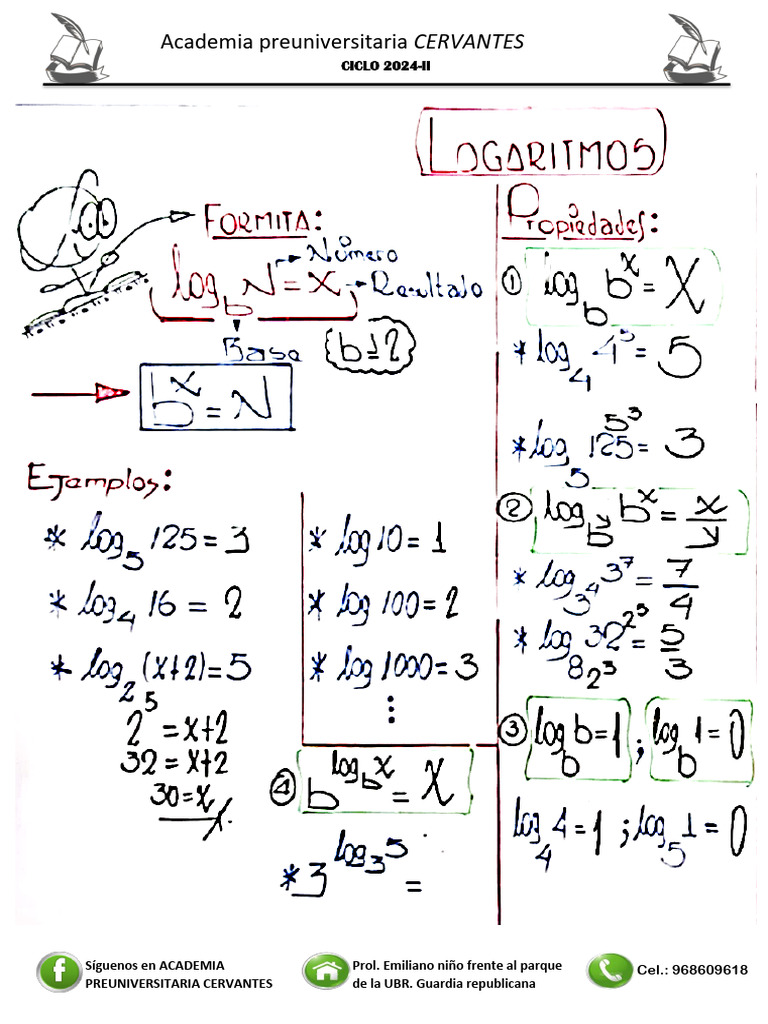 Academia preuniversitaria CERVANTES
CICLO 2024-II
LOGARITMOS
FORMITA:
log_b N = x
Número
Resultado
Base
b^x = N
Ejemplos:
* log_5 125 = 3
* log_4 16 = 2
* log_2 (x+2) = 5
2^5 = x+2
32 = x+2
30 = x
* log 10 = 1
* log 100 = 2
* log 1000 = 3
⋮
④ b^(log_b x) = x
* 3^(log_3 5) =
Propiedades:
① log_b b^x = x
* log_4 4^5 = 5
5^3
* log_5 125 = 3
② log_(b^y) b^x = x/y
* log_(3^4) 3^7 = 7/4
2^5
* log_8 32 = 5/3
2^3
③ log_b b = 1 ; log_b 1 = 0
log_4 4 = 1 ; log_5 1 = 0
Síguenos en ACADEMIA
PREUNIVERSITARIA CERVANTES
Prol. Emiliano niño frente al parque
de la UBR. Guardia republicana
Cel.: 968609618